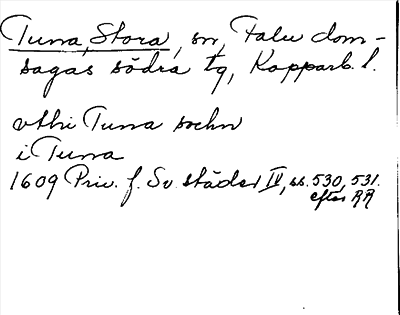 Tuna, Stora, sn, Falu dom-
sagas södra tg, Kopparb. l.
vthi Tuna sochn
i Tuna
1609 Priv. f. Sv. städer IV, ss. 530, 531.
efter RR